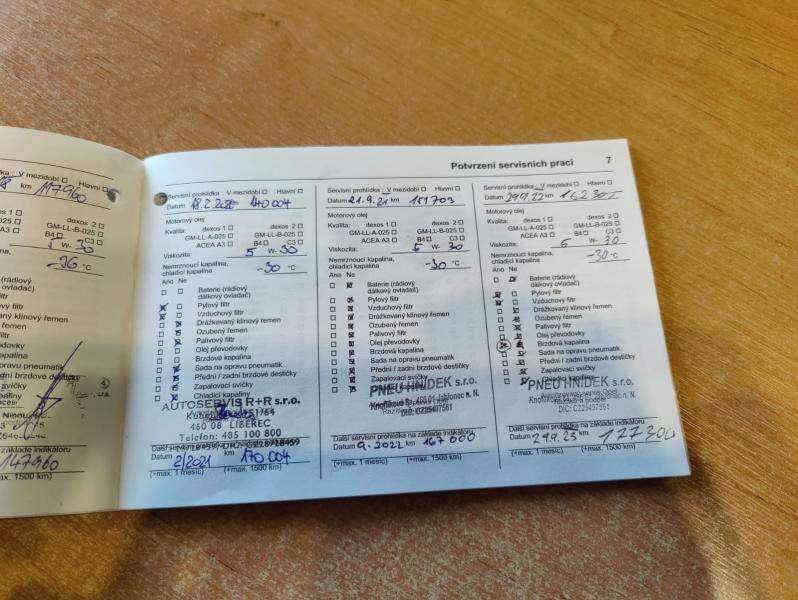 Potvrzení servisních prací 7
km 117960
Hlavní
dexos 1 dexos 2
GM-LL-B-025
ACEA A3 B4 C3
W- 30
°C
147960
(+max. 1500 km)
Servisní prohlídka: V mezidobí Hlavní
Datum 18.2.2020 140004
Motorový olej
Kvalita: dexos 1 dexos 2
GM-LL-A-025 GM-LL-B-025
ACEA A3 B4 C3
Viskozita: 5 W- 30
Nemrznoucí kapalina,
chladicí kapalina -30 °C
Ano Ne
Baterie (rádiový
dálkový ovladač)
Pylový filtr
Vzduchový filtr
Drážkovaný klínový řemen
Ozubený řemen
Palivový filtr
Olej převodovky
Brzdová kapalina
Sada na opravu pneumatik
Přední / zadní brzdové destičky
Zapalovací svíčky
Chladicí kapaliny
AUTOSERVIS R+R s.r.o.
460 08 LIBEREC
Telefon: 485 100 800
Další servisní prohlídka na základě indikátoru
Datum 2/2021 km 170004
(+max. 1 měsíc) (+max. 1500 km)
Servisní prohlídka: V mezidobí Hlavní
Datum 21.9.21 km 151703
Motorový olej
Kvalita: dexos 1 dexos 2
GM-LL-A-025 GM-LL-B-025
ACEA A3 B4 C3
Viskozita: 5 W- 30
Nemrznoucí kapalina,
chladicí kapalina -30 °C
Ano Ne
Baterie (rádiový
dálkový ovladač)
Pylový filtr
Vzduchový filtr
Drážkovaný klínový řemen
Ozubený řemen
Palivový filtr
Olej převodovky
Brzdová kapalina
Sada na opravu pneumatik
Přední / zadní brzdové destičky
Zapalovací svíčky
PNEU HNÍDEK s.r.o.
Další servisní prohlídka na základě indikátoru
Datum 9.2022 km 167000
(+max. 1 měsíc) (+max. 1500 km)
Servisní prohlídka: V mezidobí Hlavní
Datum 29.9.22 km
Motorový olej
Kvalita: dexos 1 dexos 2
GM-LL-A-025 GM-LL-B-025
ACEA A3 B4 C3
Viskozita: 5 W- 30
Nemrznoucí kapalina,
chladicí kapalina -30 °C
Ano Ne
Baterie (rádiový
dálkový ovladač)
Pylový filtr
Vzduchový filtr
Drážkovaný klínový řemen
Ozubený řemen
Palivový filtr
Olej převodovky
Brzdová kapalina
Sada na opravu pneumatik
Přední / zadní brzdové destičky
Zapalovací svíčky
PNEU HNÍDEK s.r.o.
Další servisní prohlídka na základě indikátoru
Datum 29.9.23 km 177300
(+max. 1 měsíc) (+max. 1500 km)